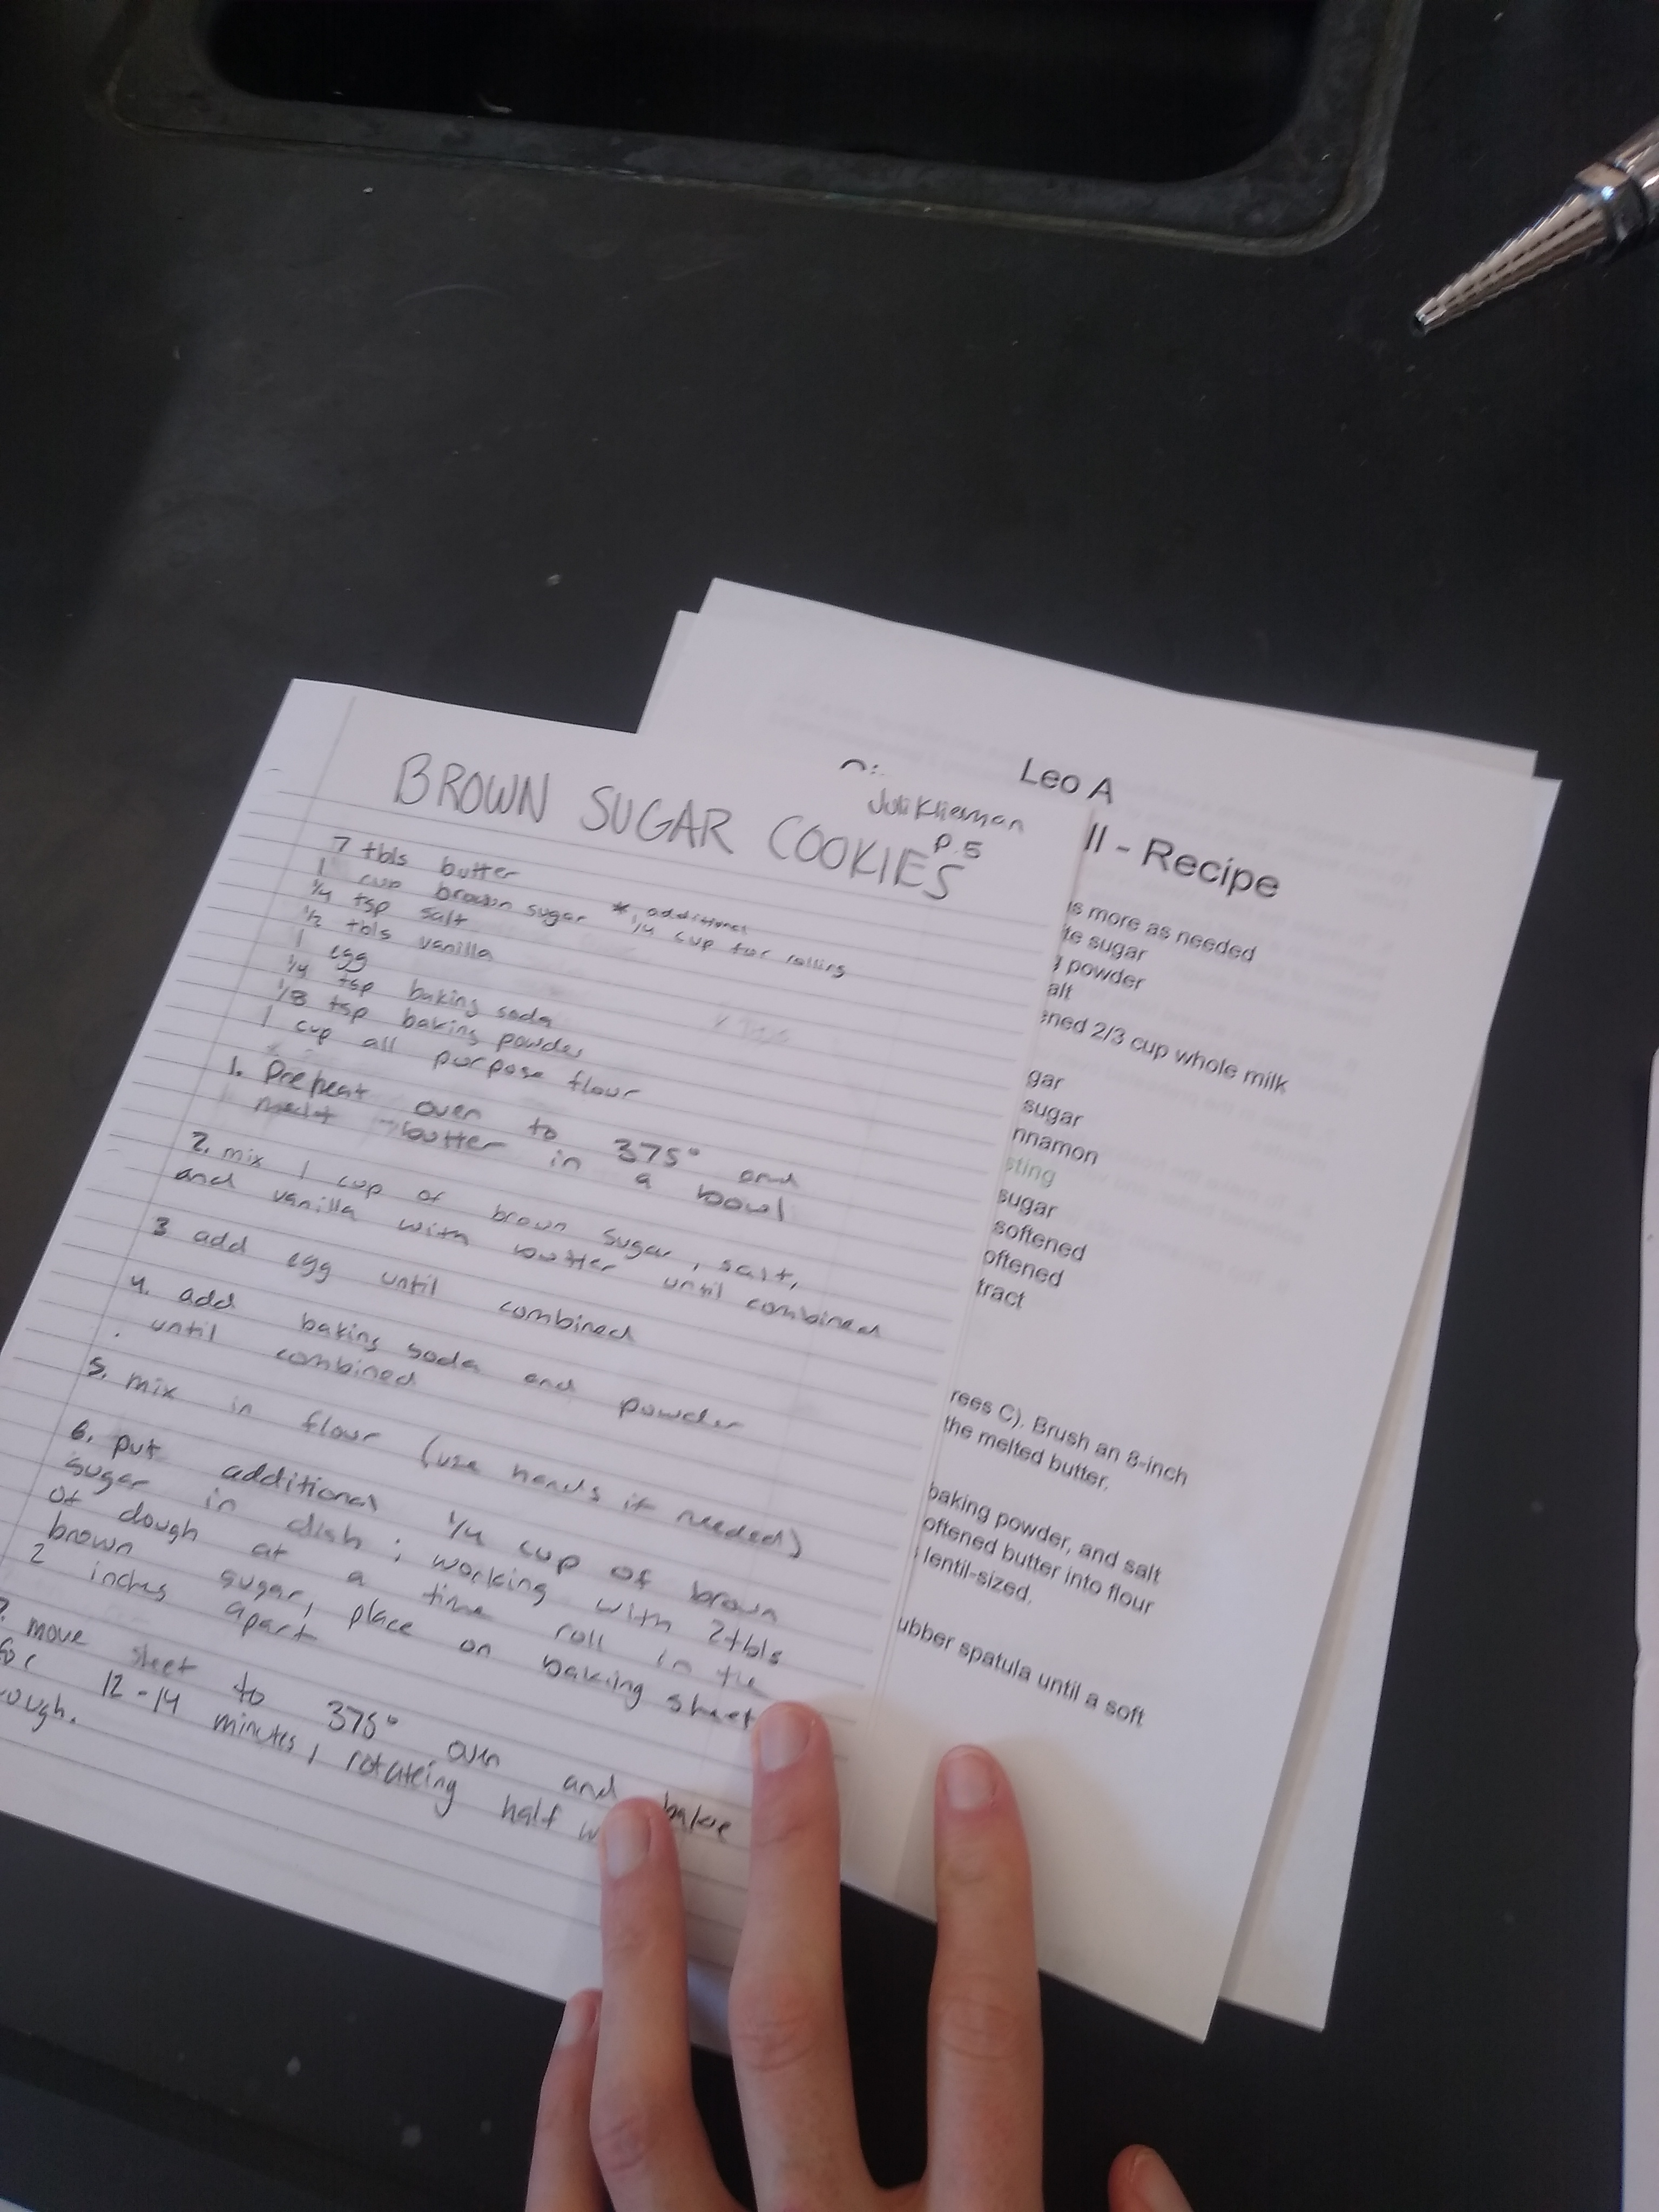 BROWN SUGAR COOKIES
P.5
7 tbls butter
1 cup brown sugar * additional
1/4 cup for rolling
1/4 tsp salt
1/2 tbls vanilla
1 egg
1/4 tsp baking soda
1/8 tsp baking powder
1 cup all purpose flour
1. Preheat oven to 375° and
melt butter in a bowl
2. mix 1 cup of brown sugar, salt,
and vanilla with butter until combined
3 add egg until combined
4. add baking soda and powder
until combined
5. mix in flour (use hands if needed)
6. put additional 1/4 cup of brown
sugar in dish; working with 2tbls
of dough at a time roll in the
brown sugar, place on baking sheet
2 inches apart
7. move sheet to 375° oven and bake
for 12-14 minutes, rotateing half w
rough.
Leo A
ll - Recipe
s more as needed
te sugar
g powder
alt
ened 2/3 cup whole milk
gar
sugar
nnamon
sting
sugar
softened
oftened
tract
rees C). Brush an 8-inch
the melted butter.
baking powder, and salt
oftened butter into flour
lentil-sized.
ubber spatula until a soft